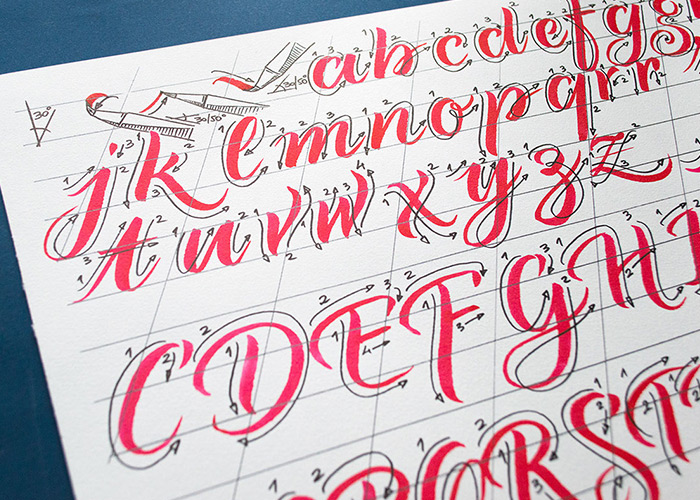 30°
30/50°
30/50°
a b c d e f g g
j k l m n o p q r r
t u v w x y z z
C D E F G H I
R S T